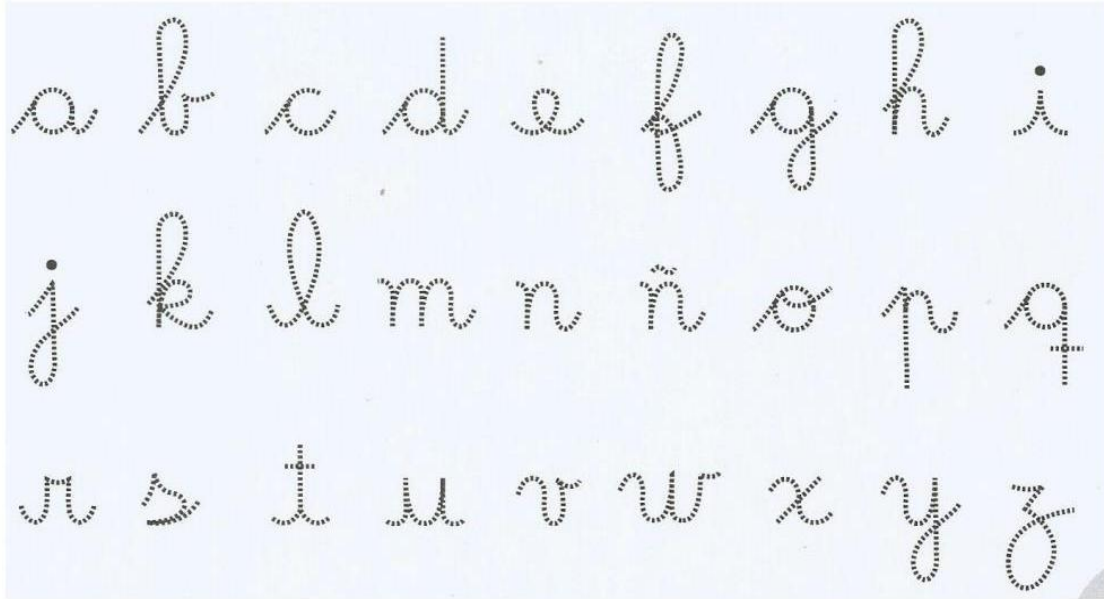 a b c d e f g h i
j k l m n ñ o p q
r s t u v w x y z